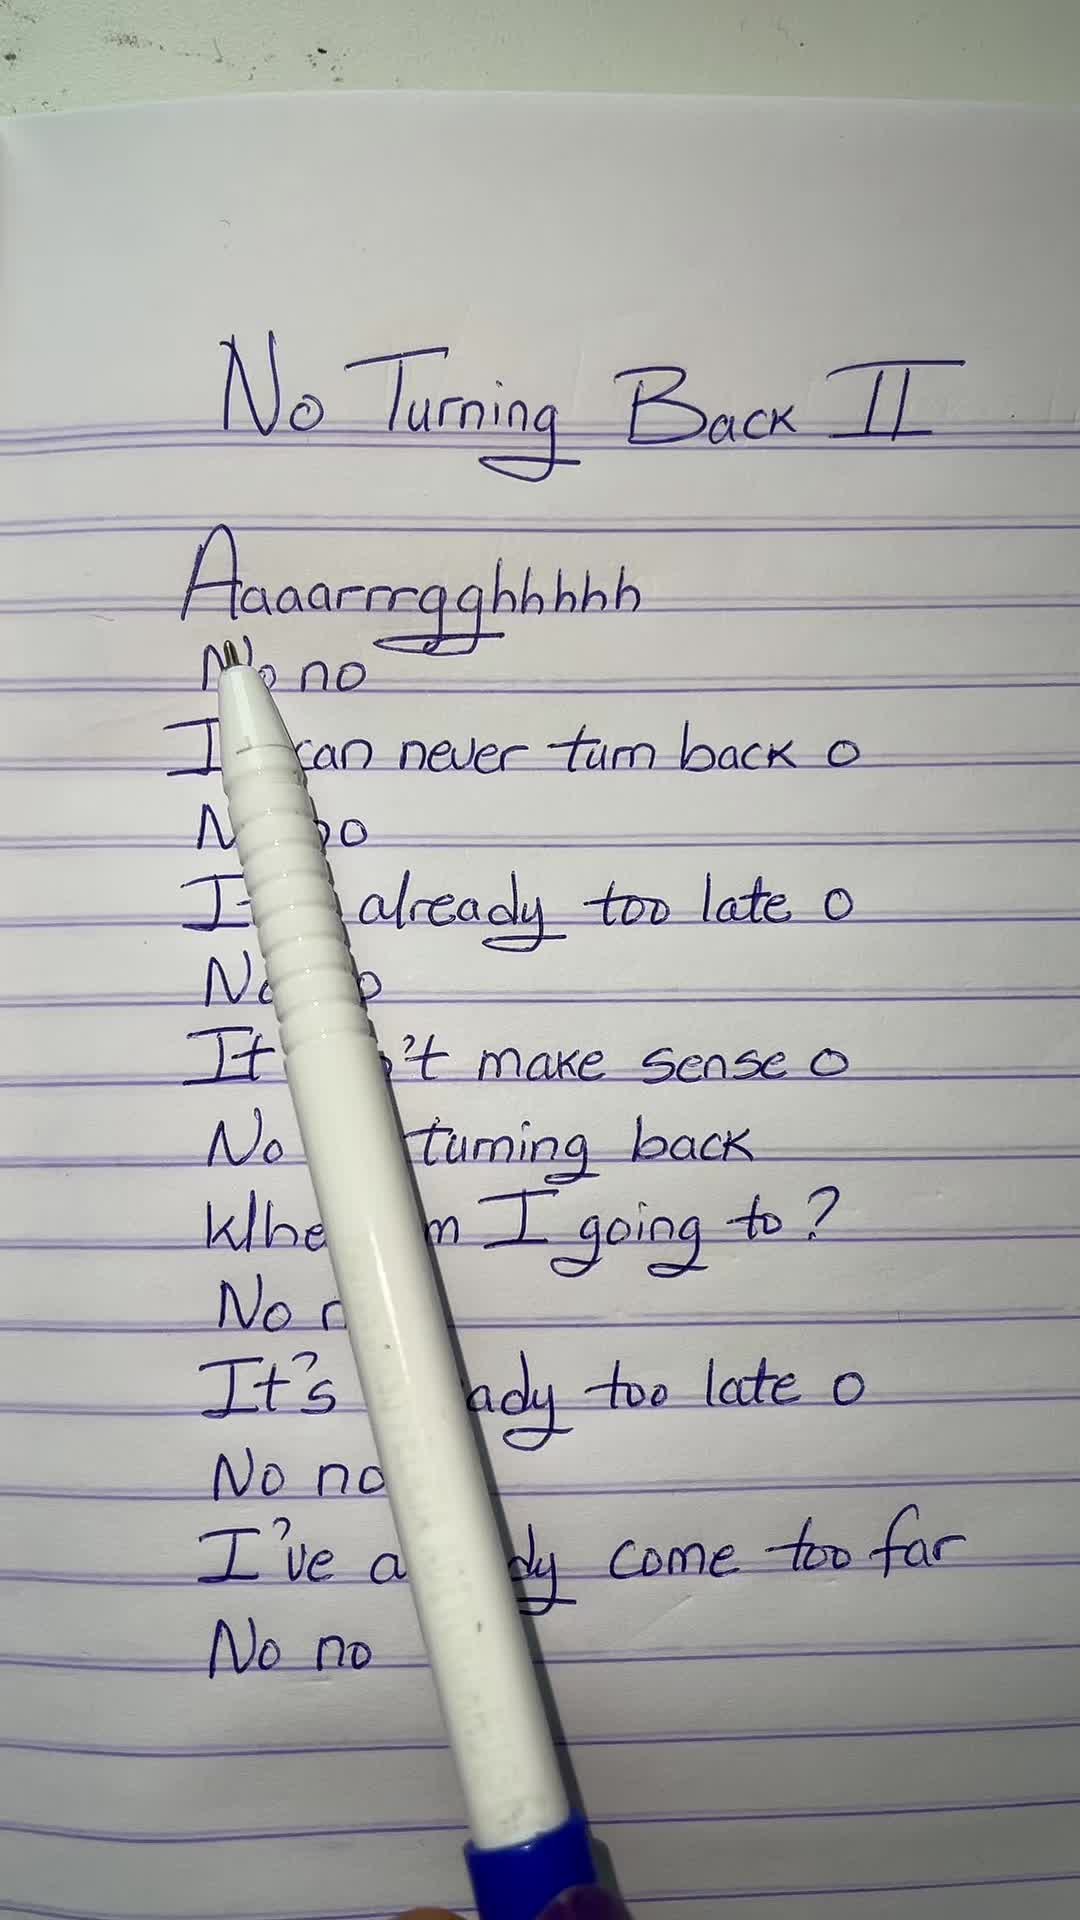 No Turning Back II
Aaaarrrgghhhhh
No no
I can never turn back o
No no
already too late o
No
It make sense o
No turning back
I going to?
No
It's too late o
No no
I've come too far
No no